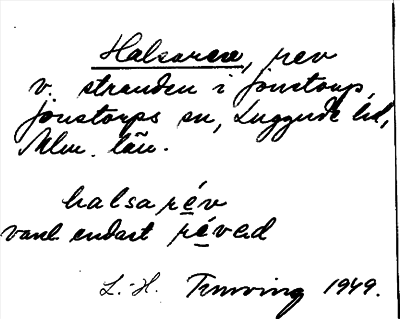 Halsarev, rev
v. stranden i Jonstorp,
Jonstorps sn, Luggude hd,
Mlm. län.
halsarév
vanl. endast révəd
L.-H. 1949.